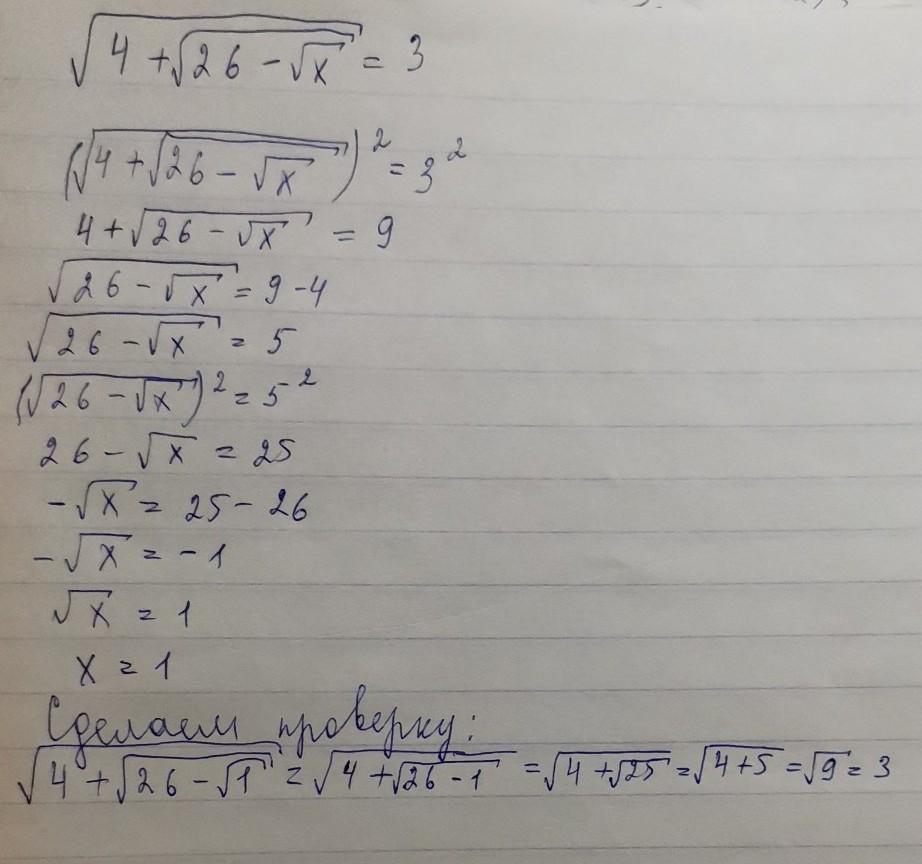 √(4 + √(26 - √x)) = 3
(√(4 + √(26 - √x)))² = 3²
4 + √(26 - √x) = 9
√(26 - √x) = 9 - 4
√(26 - √x) = 5
(√(26 - √x))² = 5²
26 - √x = 25
-√x = 25 - 26
-√x = -1
√x = 1
x = 1
Сделаем проверку:
√(4 + √(26 - √1)) = √(4 + √(26 - 1)) = √(4 + √25) = √(4 + 5) = √9 = 3